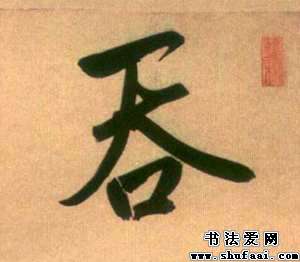 吞
书法爱网
www.shufaai.com